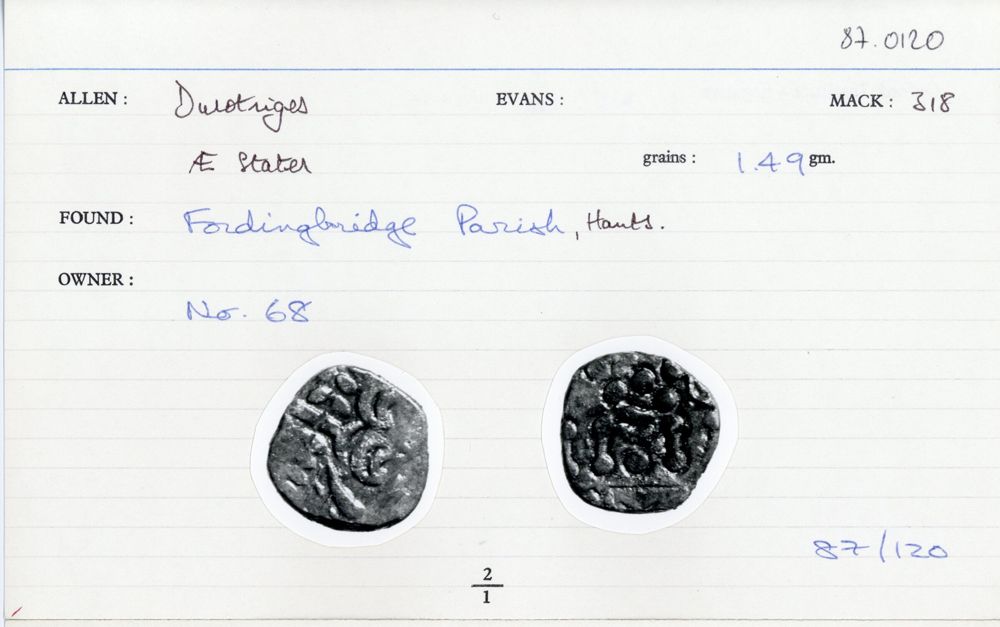 87.0120
ALLEN : Durotriges EVANS : MACK : 318
Æ Stater grains : 1.49 gm.
FOUND : Fordingbridge Parish, Hants.
OWNER :
No. 68
87/120
2
1